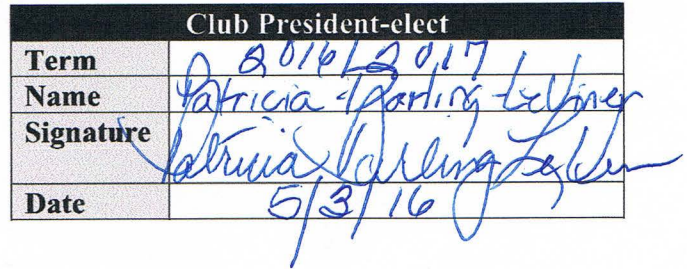 Club President-elect
Term 2016/2017
Name Patricia Darling
Signature Patricia Darling
Date 5/3/16